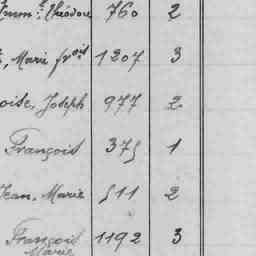 Théodore 760 2
, Marie frois 1207 3
oise, Joseph 977 2
François 375 1
Jean, Marie 511 2
François 1192 3
Marie